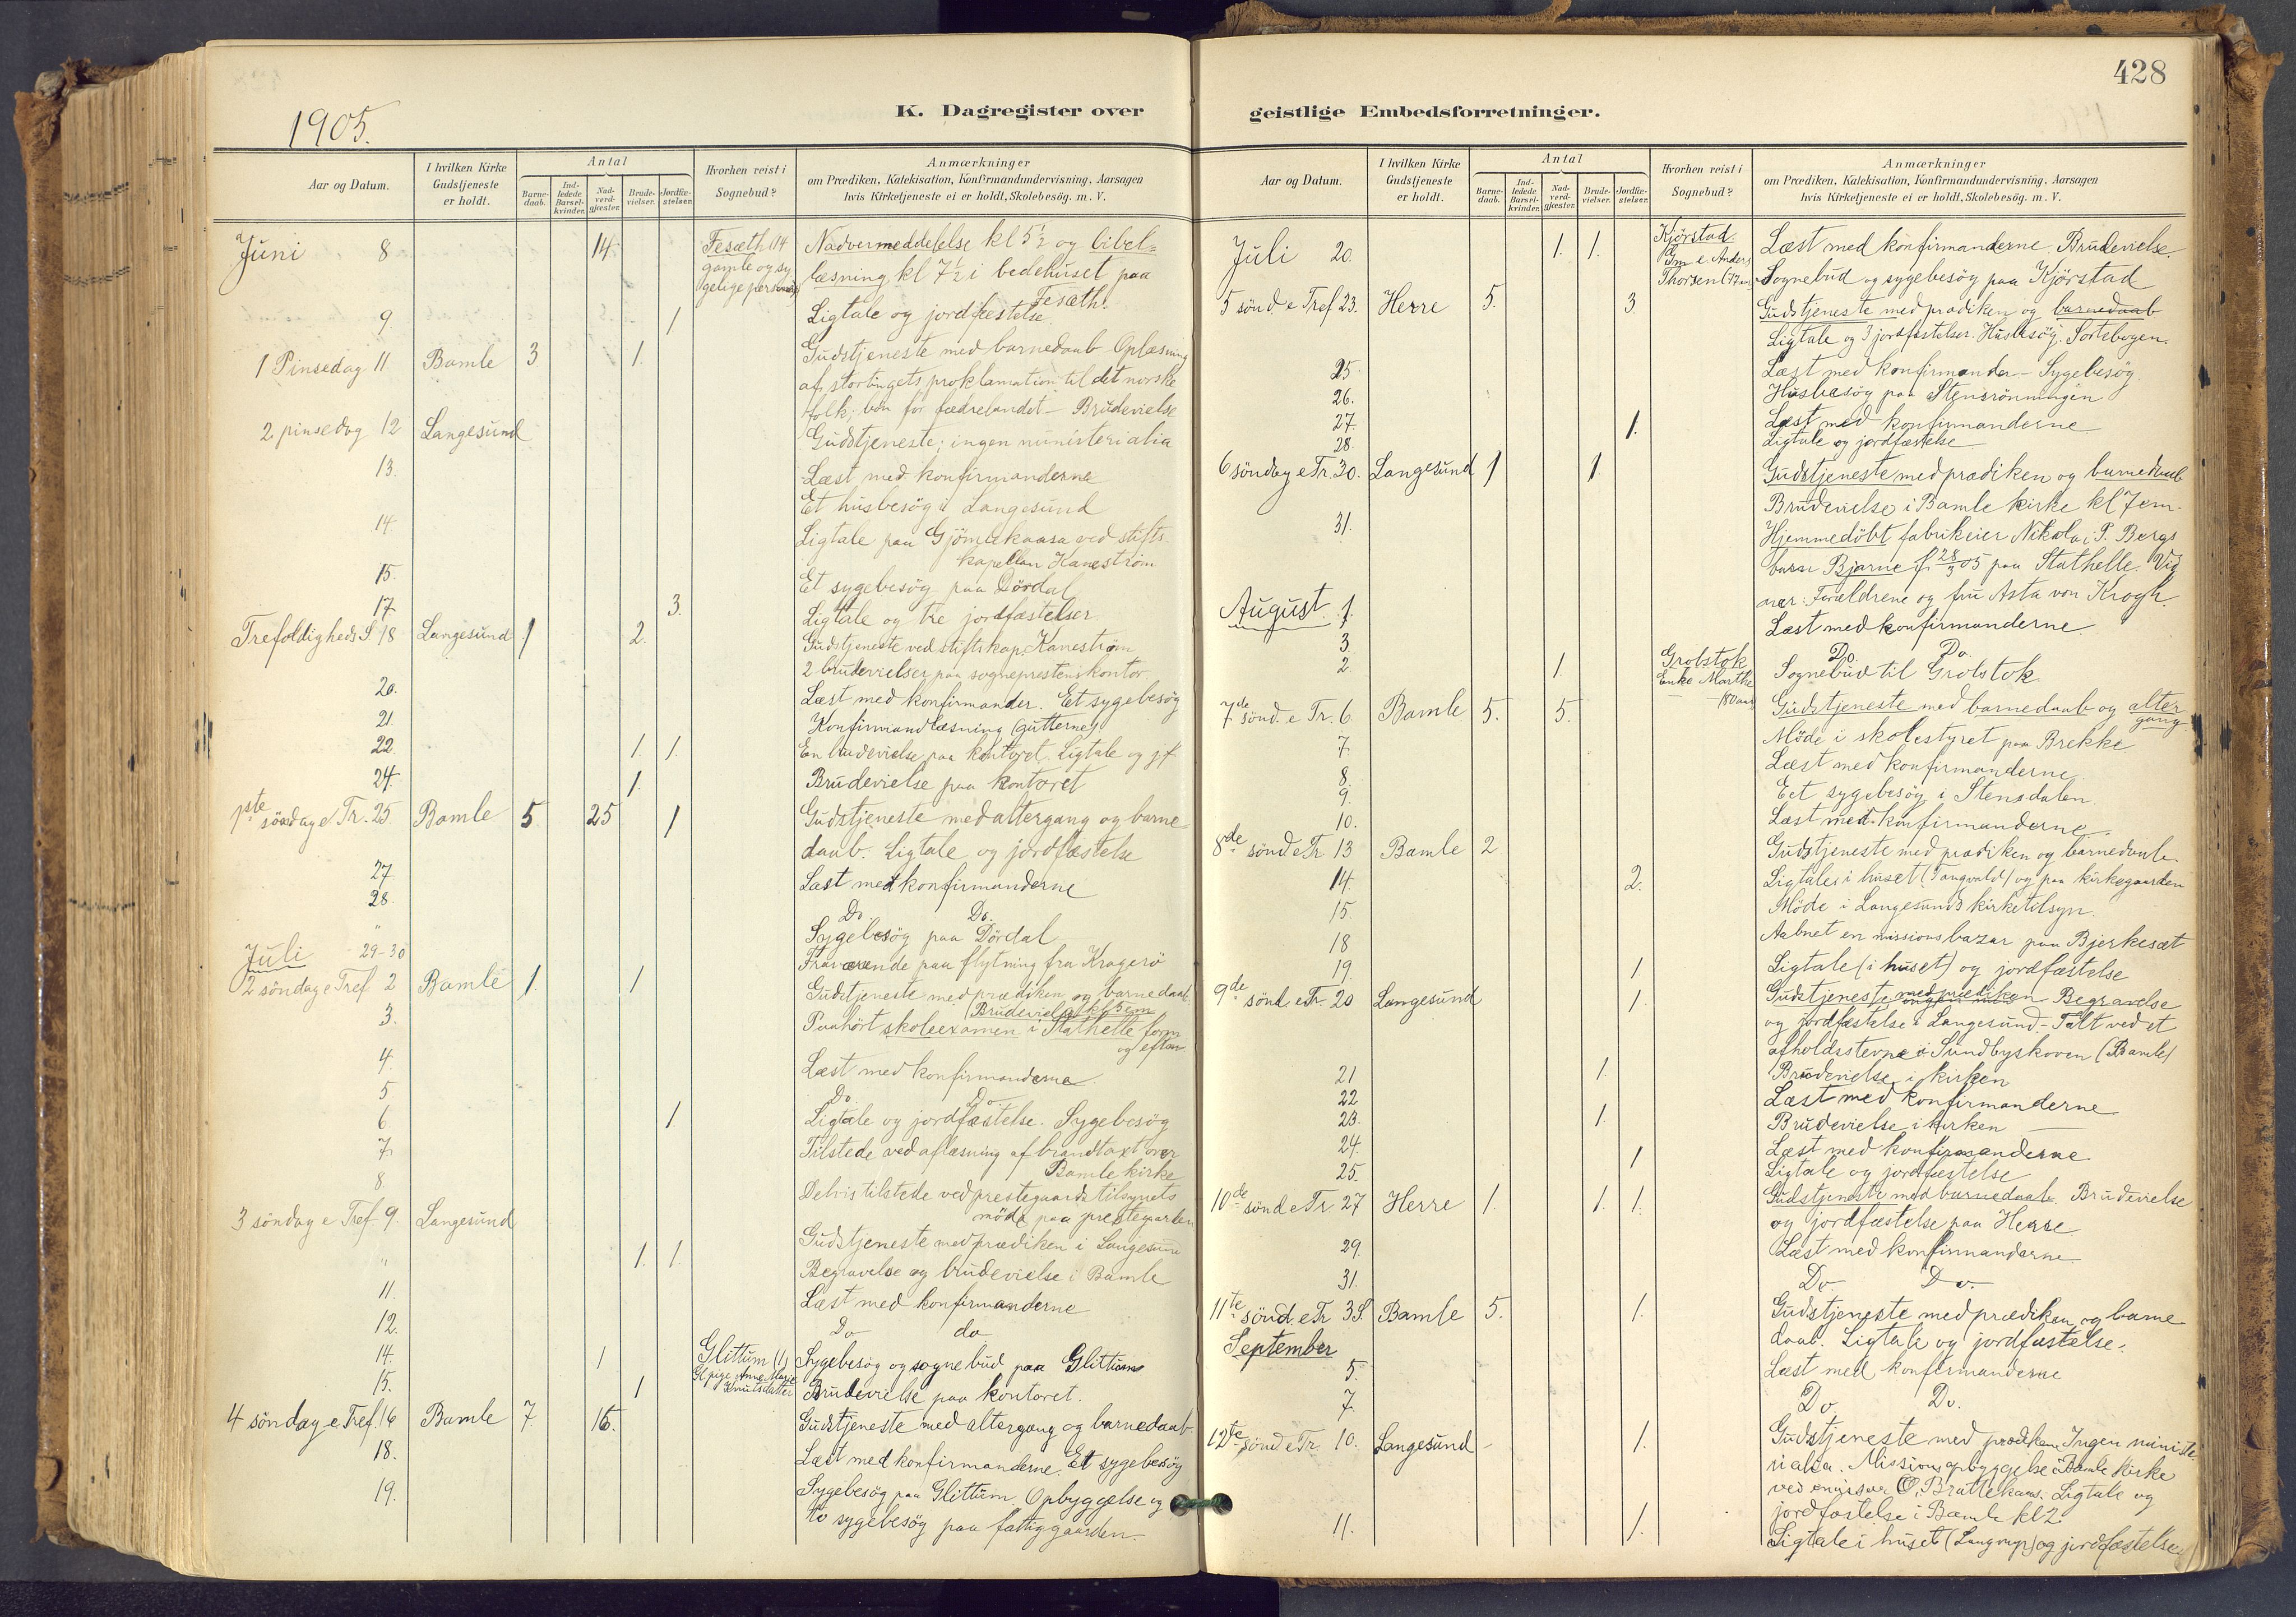 428
K. Dagregister over geistlige Embedsforretninger.
1905.
Aar og Datum.
I hvilken Kirke Gudstjeneste er holdt.
Antal
Barnedaab.
Indledede Barselkvinder.
Nadverdgjæster.
Brudevielser.
Jordfæstelser.
Hvorhen reist i Sognebud?
Anmærkninger
om Prædiken, Katekisation, Konfirmandundervisning, Aarsagen
hvis Kirketjeneste ei er holdt, Skolebesög. m. V.
Juni 8 14. Fesæth (14 Nadvermeddelelse kl 5½ og bibel=
gamle og sy læsning kl 7½ i bedehuset paa
gelige personer) Fesæth.
9. 1 Ligtale og jordfæstelse
1 Pinsedag 11 Bamle 3 1. Gudstjeneste med barnedaab Oplæsning
af stortingets proklamation til det norske
folk; bön for fædrelandet – Brudevielse
2 pinsedag 12 Langesund Gudstjeneste; ingen ministerialia
13. Læst med konfirmanderne
Et husbesög i Langesund
14. Ligtale paa ved stifts
kapellan Kaneström
15. Et sygebesög paa Dördal
17. 3. Ligtale og tre jordfæstelser
Trefoldigheds S 18 Langesund 1 2. Gudstjeneste ved stiftskap. Kaneström
2 brudevielser paa sogneprestens kontor
20. Læst med konfirmander. Et sygebesög
21. Konfirmandlæsning (gutterne)
22. 1. 1. En brudevielse paa kontoret. Ligtale og jf
24. 1. Brudevielse paa kontoret
1ste söndag e Tr. 25 Bamle 5 25 1 Gudstjeneste med altergang og barne=
daab. Ligtale og jordfæstelse
27. Læst med konfirmanderne
28. Do. Do.
" Sygebesög paa Dördal
Juli 29-30 Fraværende paa flytning fra Kragerö
2 söndag e Tref 2 Bamle 1. 1 Gudstjeneste med prædiken og barnedaab
(Brudevielse kl 5 em
3. Paahört skoleexamen i Stathelle form
og efterm
4. Læst med konfirmanderne
5 Do. Do.
6. 1. Ligtale og jordfæstelse. Sygebesög
7. Tilstede ved aflæsning af brandtaxt over
Bamle kirke
8. Delvis tilstede ved prestegaards tilsynets
möde paa prestegaarden
3 söndag e Tref. 9. Langesund Gudstjeneste med prædiken i Langesund
" 1. 1. Begravelse og brudevielse i Bamle
11. Læst med konfirmanderne
12. Do do
14. 1 Glittum (1) Sygebesög og sognebud paa Glittum
Gl pige Anne Marie Knutsdatter
15. 1 Brudevielse paa kontoret.
4 söndag e Tref. 16 Bamle 7 16. Gudstjeneste med altergang og barnedaab.
18. Læst med konfirmanderne. Et sygebesög
19. Sygebesög paa Glittum. Opbyggelse og
to sygebesög paa fattiggaarden
Aar og Datum.
I hvilken Kirke Gudstjeneste er holdt.
Antal
Barnedaab.
Indledede Barselkvinder.
Nadverdgjæster.
Brudevielser.
Jordfæstelser.
Hvorhen reist i Sognebud?
Anmærkninger
om Prædiken, Katekisation, Konfirmandundervisning, Aarsagen
hvis Kirketjeneste ei er holdt, Skolebesög. m. V.
Juli 20. 1. 1. Kjörstad. Læst med konfirmanderne. Brudevielse.
Gm e Anders
Thorsen (72 aar) Sognebud og sygebesög paa Kjörstad
5 sönd. e Tref 23. Herre 5. 3. Gudstjeneste med prædiken og barnedaab
Ligtale og 3 jordfæstelser. Husbesög. Sortebogen.
25. Læst med konfirmander – Sygebesög
26. Husbesög paa Stensrönningen
27. Læst med konfirmanderne
28. 1. Ligtale og jordfæstelse
6 söndag e Tr. 30. Langesund 1 1. Gudstjeneste med prædiken og barnedaab
Brudevielse i Bamle kirke kl 7 em.
31. Hjemmedöbt fabrikeier Nikolai P. Bergs
barn Bjarne f. 28/3 05 paa Stathelle. Vid
ner: Forældrene og fru Asta von Krogh.
August 1. Læst med konfirmanderne.
3. Do. Do.
2. 1. Grobstok Sognebud til Grobstok.
Enke Marthe
80 aar
7de sönd. e Tr. 6. Bamle 5. 5. Gudstjeneste med barnedaab og alter
gang.
7. Möde i skolestyret paa Brekke
8. Læst med konfirmanderne
9. Eet sygebesög i Stensdalen
10. Læst med konfirmanderne.
8de sönd e Tr 13 Bamle 2 Gudstjeneste med prædiken og barnedaab.
14. 2. Ligtaler i huset (Tangvald) og paa kirkegaarden
15. Möde i Langesunds kirketilsyn.
18 Aabnet en missionsbazar paa Bjerkesæt
19. 1. Ligtale (i huset) og jordfæstelse
9de sönd e Tr. 20 Langesund 1. Gudstjeneste med prædiken Begravelse
og jordfæstelse i Langesund. – Talt ved et
afholdsstevne i Sundbyskoven (Bamle)
21 1. Brudevielse i kirken
22 Læst med konfirmanderne
23. 1. Brudevielse i kirken
24. Læst med konfirmanderne
25. 1 Ligtale og jordfæstelse
10de sönd e Tr 27 Herre 1. 1. 1. Gudstjeneste med barnedaab. Brudevielse
og jordfæstelse paa Herre
29. Læst med konfirmanderne
31. Do. Do
11te sönd. e Tr 3 S. Bamle 5. 1. Gudstjeneste med prædiken og barne
September daab. Ligtale og jordfæstelse.
5. Læst med konfirmanderne
7. Do. Do.
12te sönd e Tr. 10. Langesund – 1. Gudstjeneste med prædiken Ingen ministe
rialia. Missionsopbyggelse i Bamle kirke
ved emissær O. Brattekaas. Ligtale og
jordfæstelse i Bamle kl 2.
11. 1. Ligtale i huset (Langrap) og jordfæstelse.